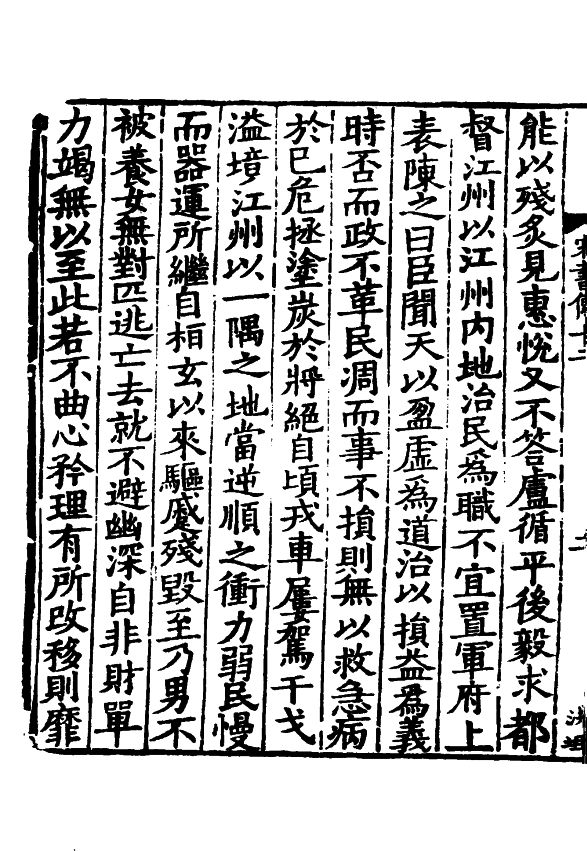 能以殘炙見惠悅又不答盧循平後毅求都
督江州以江州內地治民爲職不宜置軍府上
表陳之曰臣聞天以盈虛爲道治以損益爲義
時否而政不革民凋而事不損則無以救急病
於已危拯塗炭於將絕自頃戎車屢駕干戈
溢境江州以一隅之地當逆順之衝力弱民慢
而器運所繼自桓玄以來驅蹙殘毀至乃男不
被養女無對匹逃亡去就不避幽深自非財單
力竭無以至此若不曲心矜理有所改移則靡